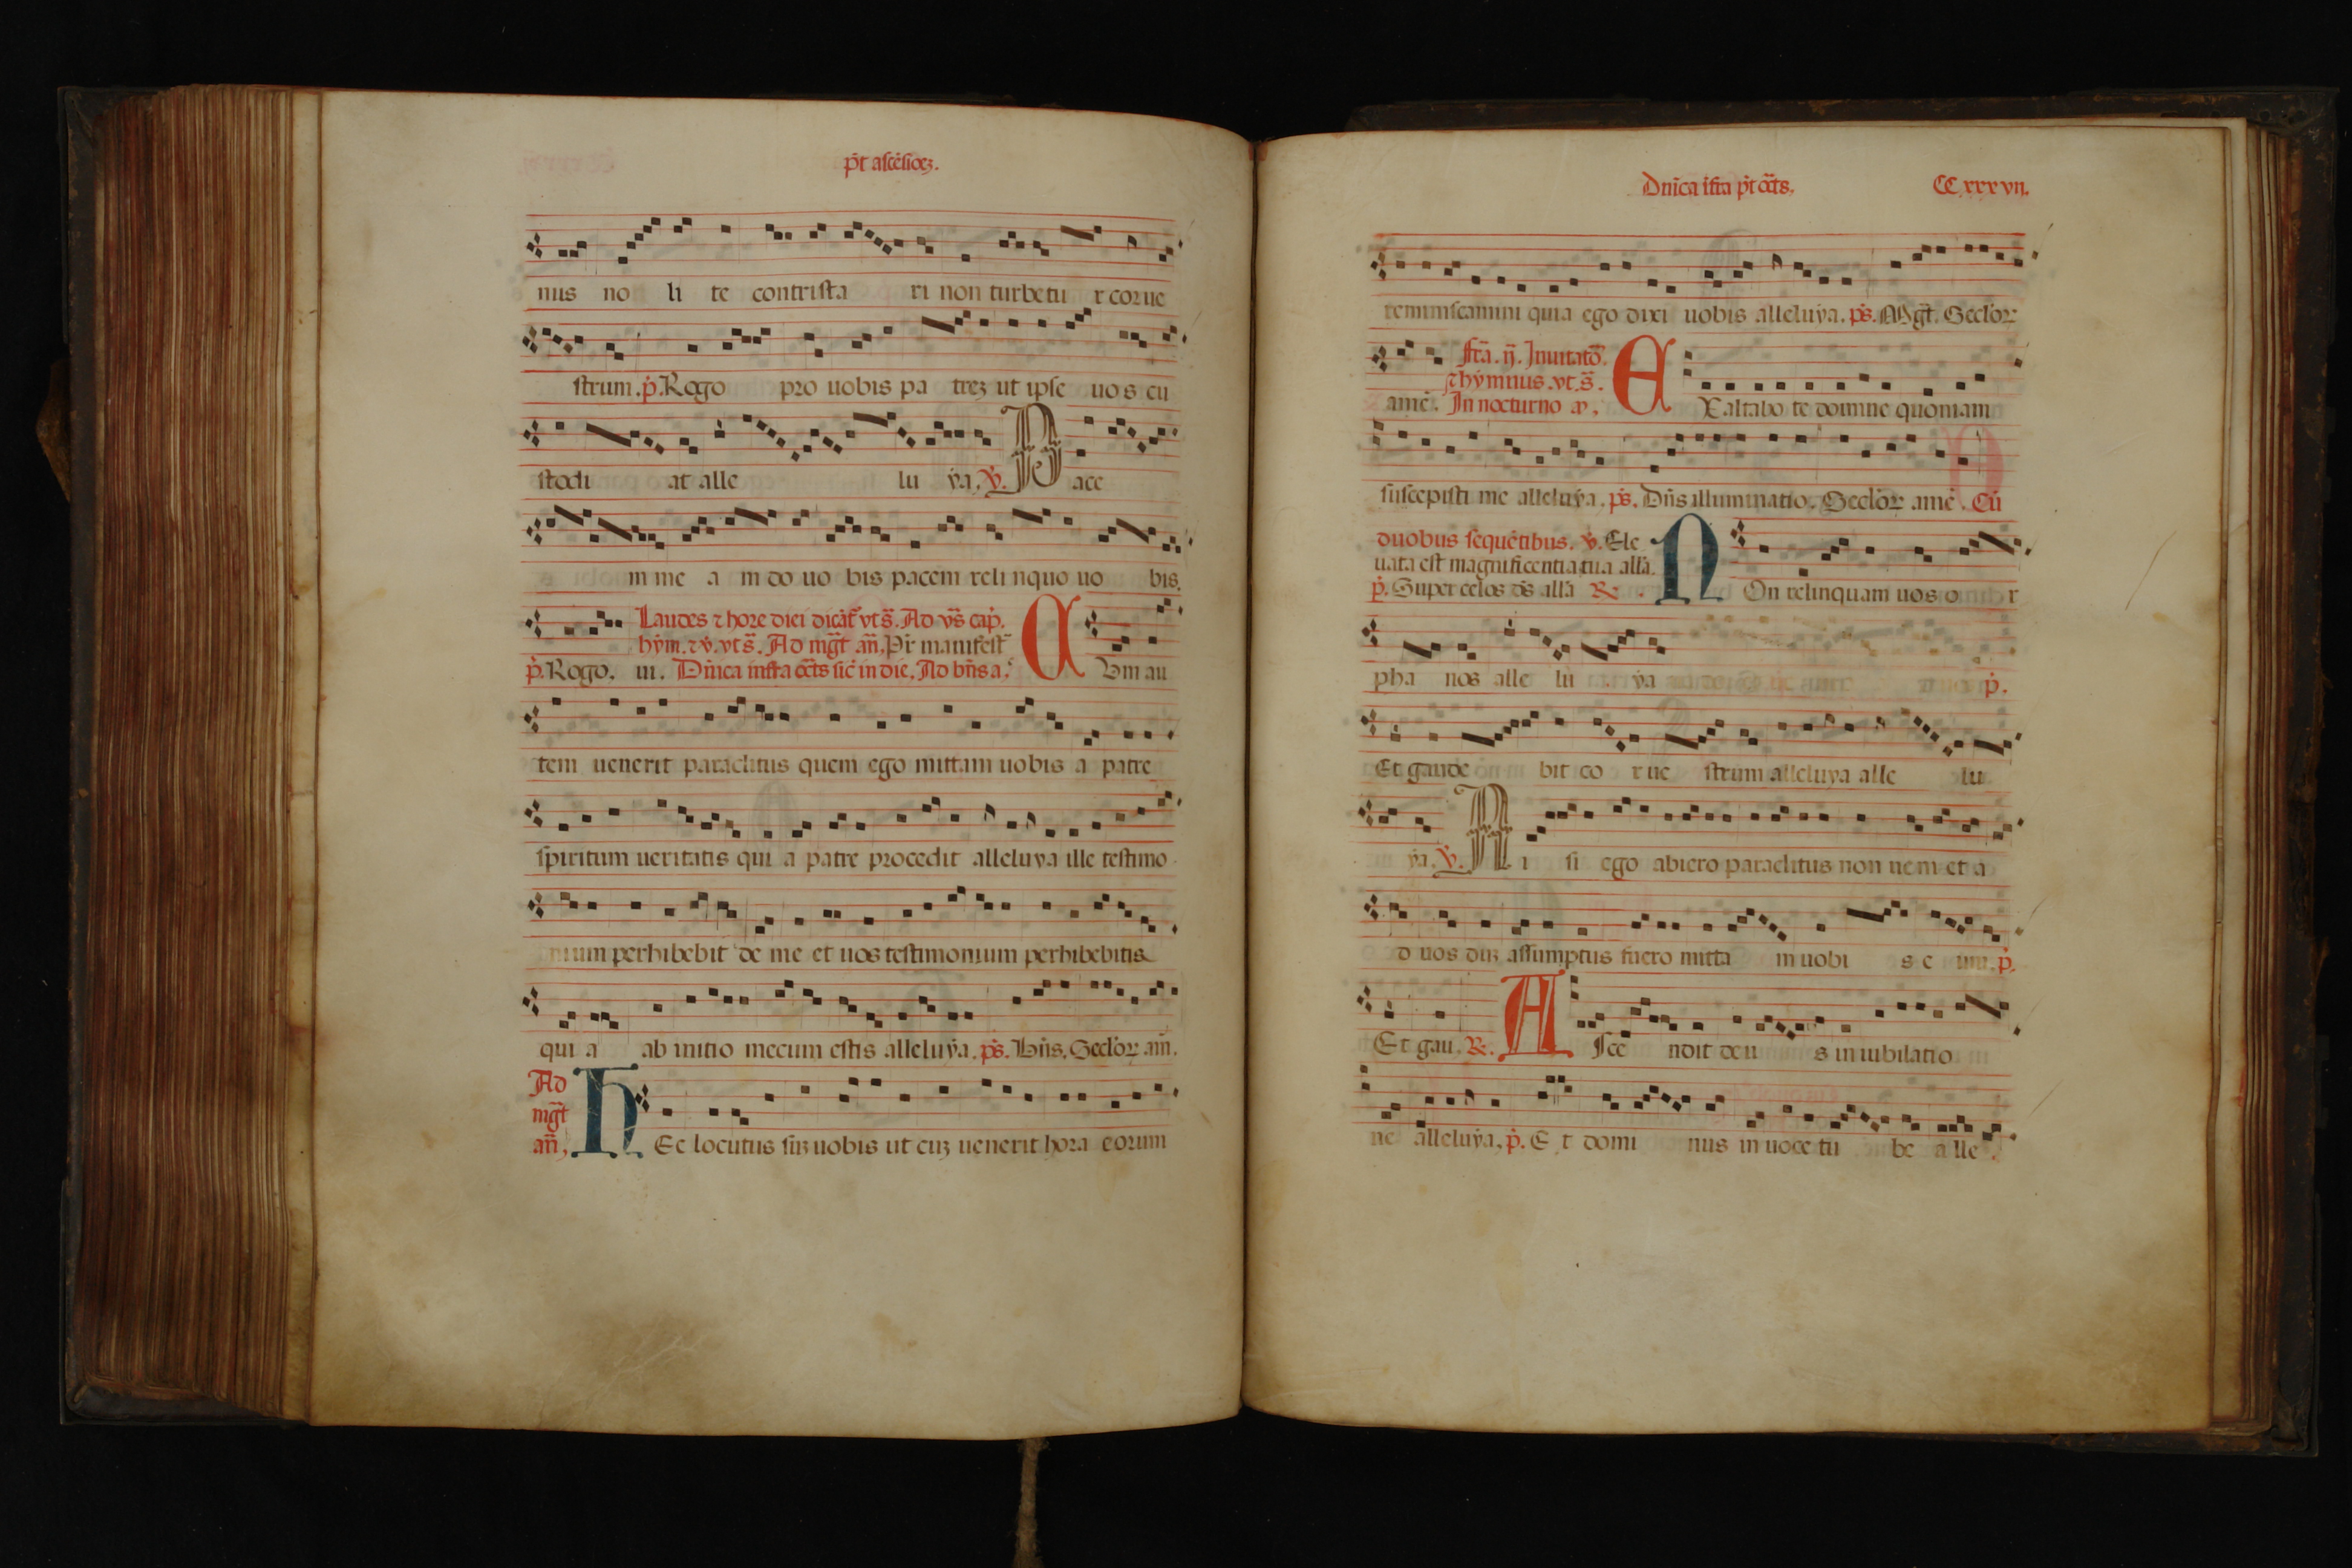 p̄t ascēsioēȝ.
nus no li te contrista ri non turbetu r cor ue
strum. p̄. Rogo pro uobis pa treȝ ut ipse uos cu
stodi at alle lu ẏa. ỽ. Pace
m me a m do uo bis pacem reli nquo uo bis.
Laudes ⁊ hore diei dicāt᷑ vt s̄. Ad vs̄ cap̄.
hẏm. ⁊ ỽ. vt s̄. Ad mḡt an̄. Pr̄ manifest᷑
p̄. Rogo. iii. Dn̄ica infra oc̄ts sic̄ in die. Ad bn̄s a.
CVm au
tem uenerit paraclitus quem ego mittam uobis a patre
spiritum ueritatis qui a patre procedit alleluya ille testimo
nium perhibebit de me et uos testimonium perhibebitis
qui a ab initio mecum estis alleluẏa. ps̄. Bn̄s. Seclo᷑ꝝ am̄.
Ad
mḡt
an̄,
HEc locutus suȝ uobis ut cuȝ uenerit hora eorum
Dnīca īfra p̄t oc̄ts.
CC xxxvıı.
reminiscamini quia ego dixi uobis alleluẏa. ps̄. Mgt̄. Seclo᷑ꝝ
fr̄a. ıȷ̄. Inuitatō.
⁊ hẏmnus. vt. s̄.
amē. In nocturno
EXaltabo te domine quoniam
suscepisti me alleluẏa. ps̄. Dn̄s illuminatio. Seclo᷑ꝝ amē. Cū
duobus sequētibus. ỽ. Ele
uata est magnificentia tua all̄a.
p̄. Super celos ds̄ all̄a ℞.
NOn relinquam uos o r
pha nos alle lu ẏa p̄.
Et gaude bit co r ue strum alleluya alle lu
ẏa. ỽ. Ni si ego abiero paraclitus non ueni et a
d uos duȝ assumptus fuero mitta m uobi s e um. p̄.
Et gau. ℞. ASce ndit deu s in iubilatio
ne alleluẏa. p̄. E t domi nus in uoce tu be alle